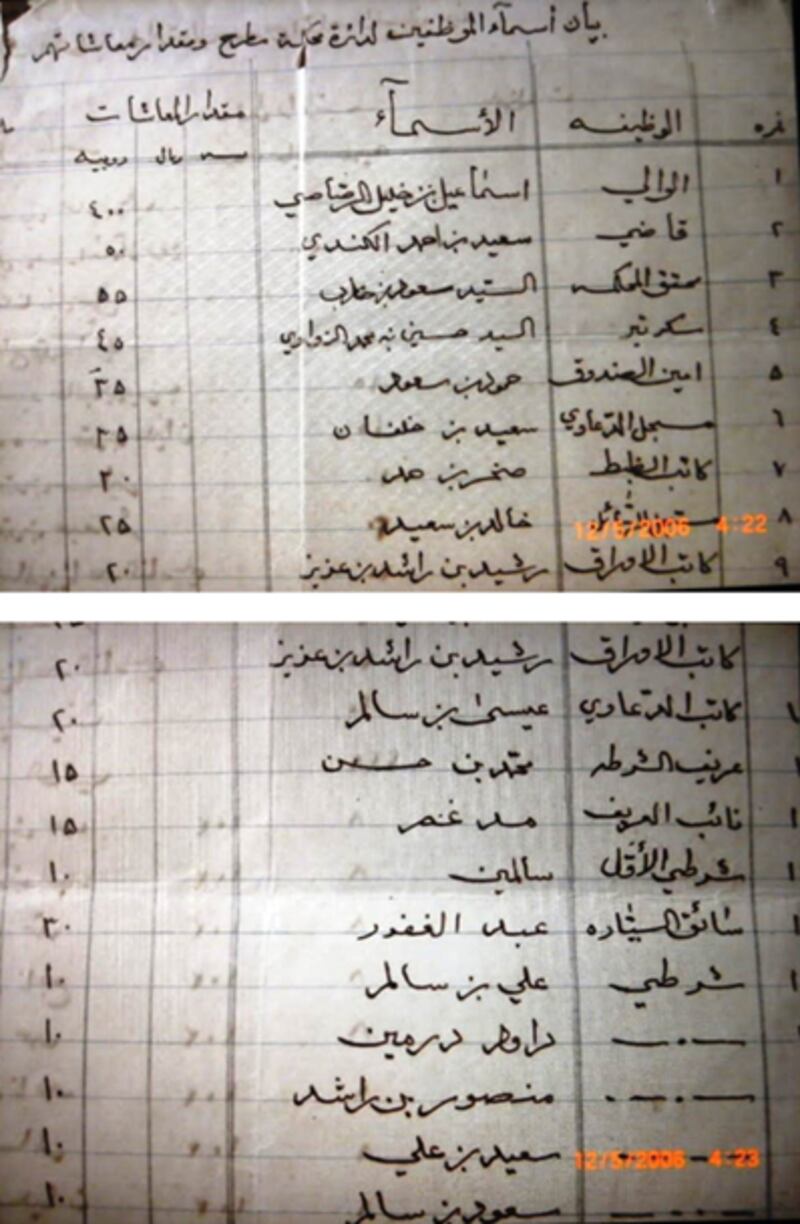 بيان أسمآء الموظفين لدائرة محكمة مطرح ومقدار معاشاتهم
نمره الوظيفه الأسمآء مقدار المعاشات
ريال روبيه
١ الوالي اسماعيل بن خليل الرصاصي ٤٠٠
٢ قاضي سعيد بن احمد الكندي ٥٠
٣ المحكمه السيد سعود بن حارب ٥٥
٤ سكرتير السيد حسين بن محمد الزواوي ٤٥
٥ امين الصندوق حمود بن سعود ٣٥
٦ مسجل الدعاوي سعيد بن خلفان ٢٥
٧ كاتب الضبط بن حمد ٢٠
٨ خالد بن سعيد ٢٥
12/5/2006 4:22
٩ كاتب الاوراق رشيد بن راشد بن عزيز ٢٠
كاتب الاوراق رشيد بن راشد بن عزيز ٢٠
كاتب الدعاوي عيسى بن سالم ٢٠
عريف الشرطه محمد بن حسن ١٥
نائب العريف ١٥
شرطي الأول سالمين ١٠
سائق السياره عبد الغفور ٣٠
شرطي علي بن سالم ١٠
داود ١٠
منصور بن راشد ١٠
سعيد بن علي ١٠
12/5/2006 4:23
سعود بن سالم ١٠